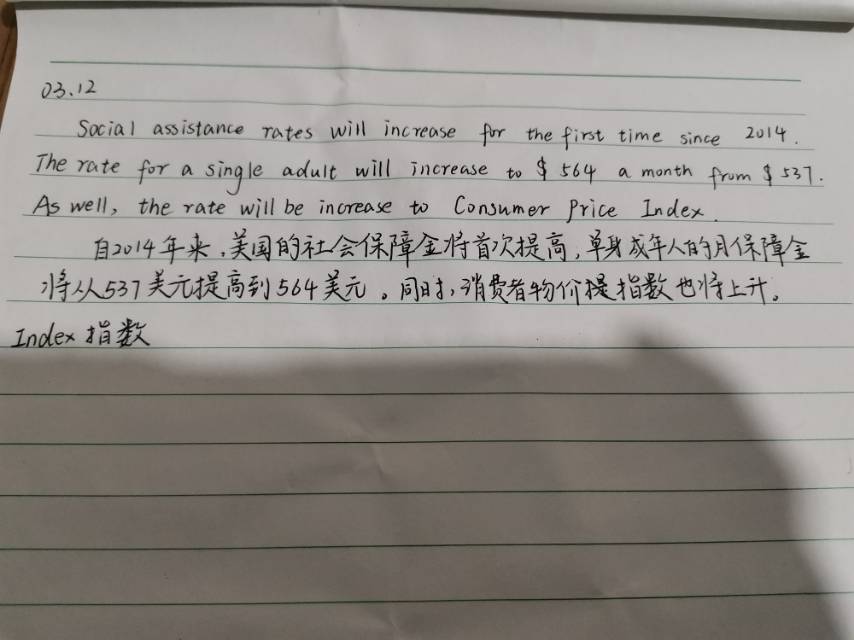 03.12
Social assistance rates will increase for the first time since 2014.
The rate for a single adult will increase to $564 a month from $537.
As well, the rate will be increase to Consumer Price Index.
自2014年来,美国的社会保障金将首次提高,单身成年人的月保障金
将从537美元提高到564美元。同时,消费者物价提指数也将上升。
Index 指数